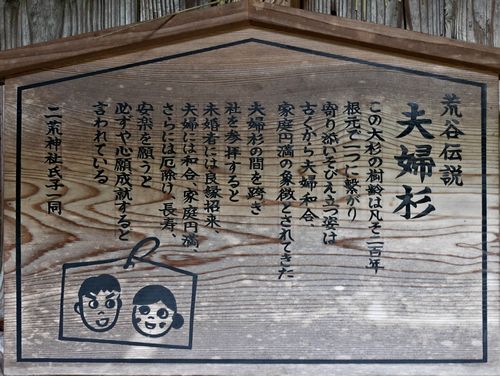 荒谷伝説
夫婦杉
この大杉の樹齢は凡そ二百年
根元で一つに繋がり
寄り添いそびえ立つ姿は
古くから夫婦和合、
家庭円満の象徴とされてきた
夫婦杉の間を跨ぎ
社を参拝すると
未婚者には良縁招来、
夫婦には和合、家庭円満、
さらには厄除け、長寿、
安楽を願うと
必ずや心願成就すると
言われている
二荒神社氏子一同